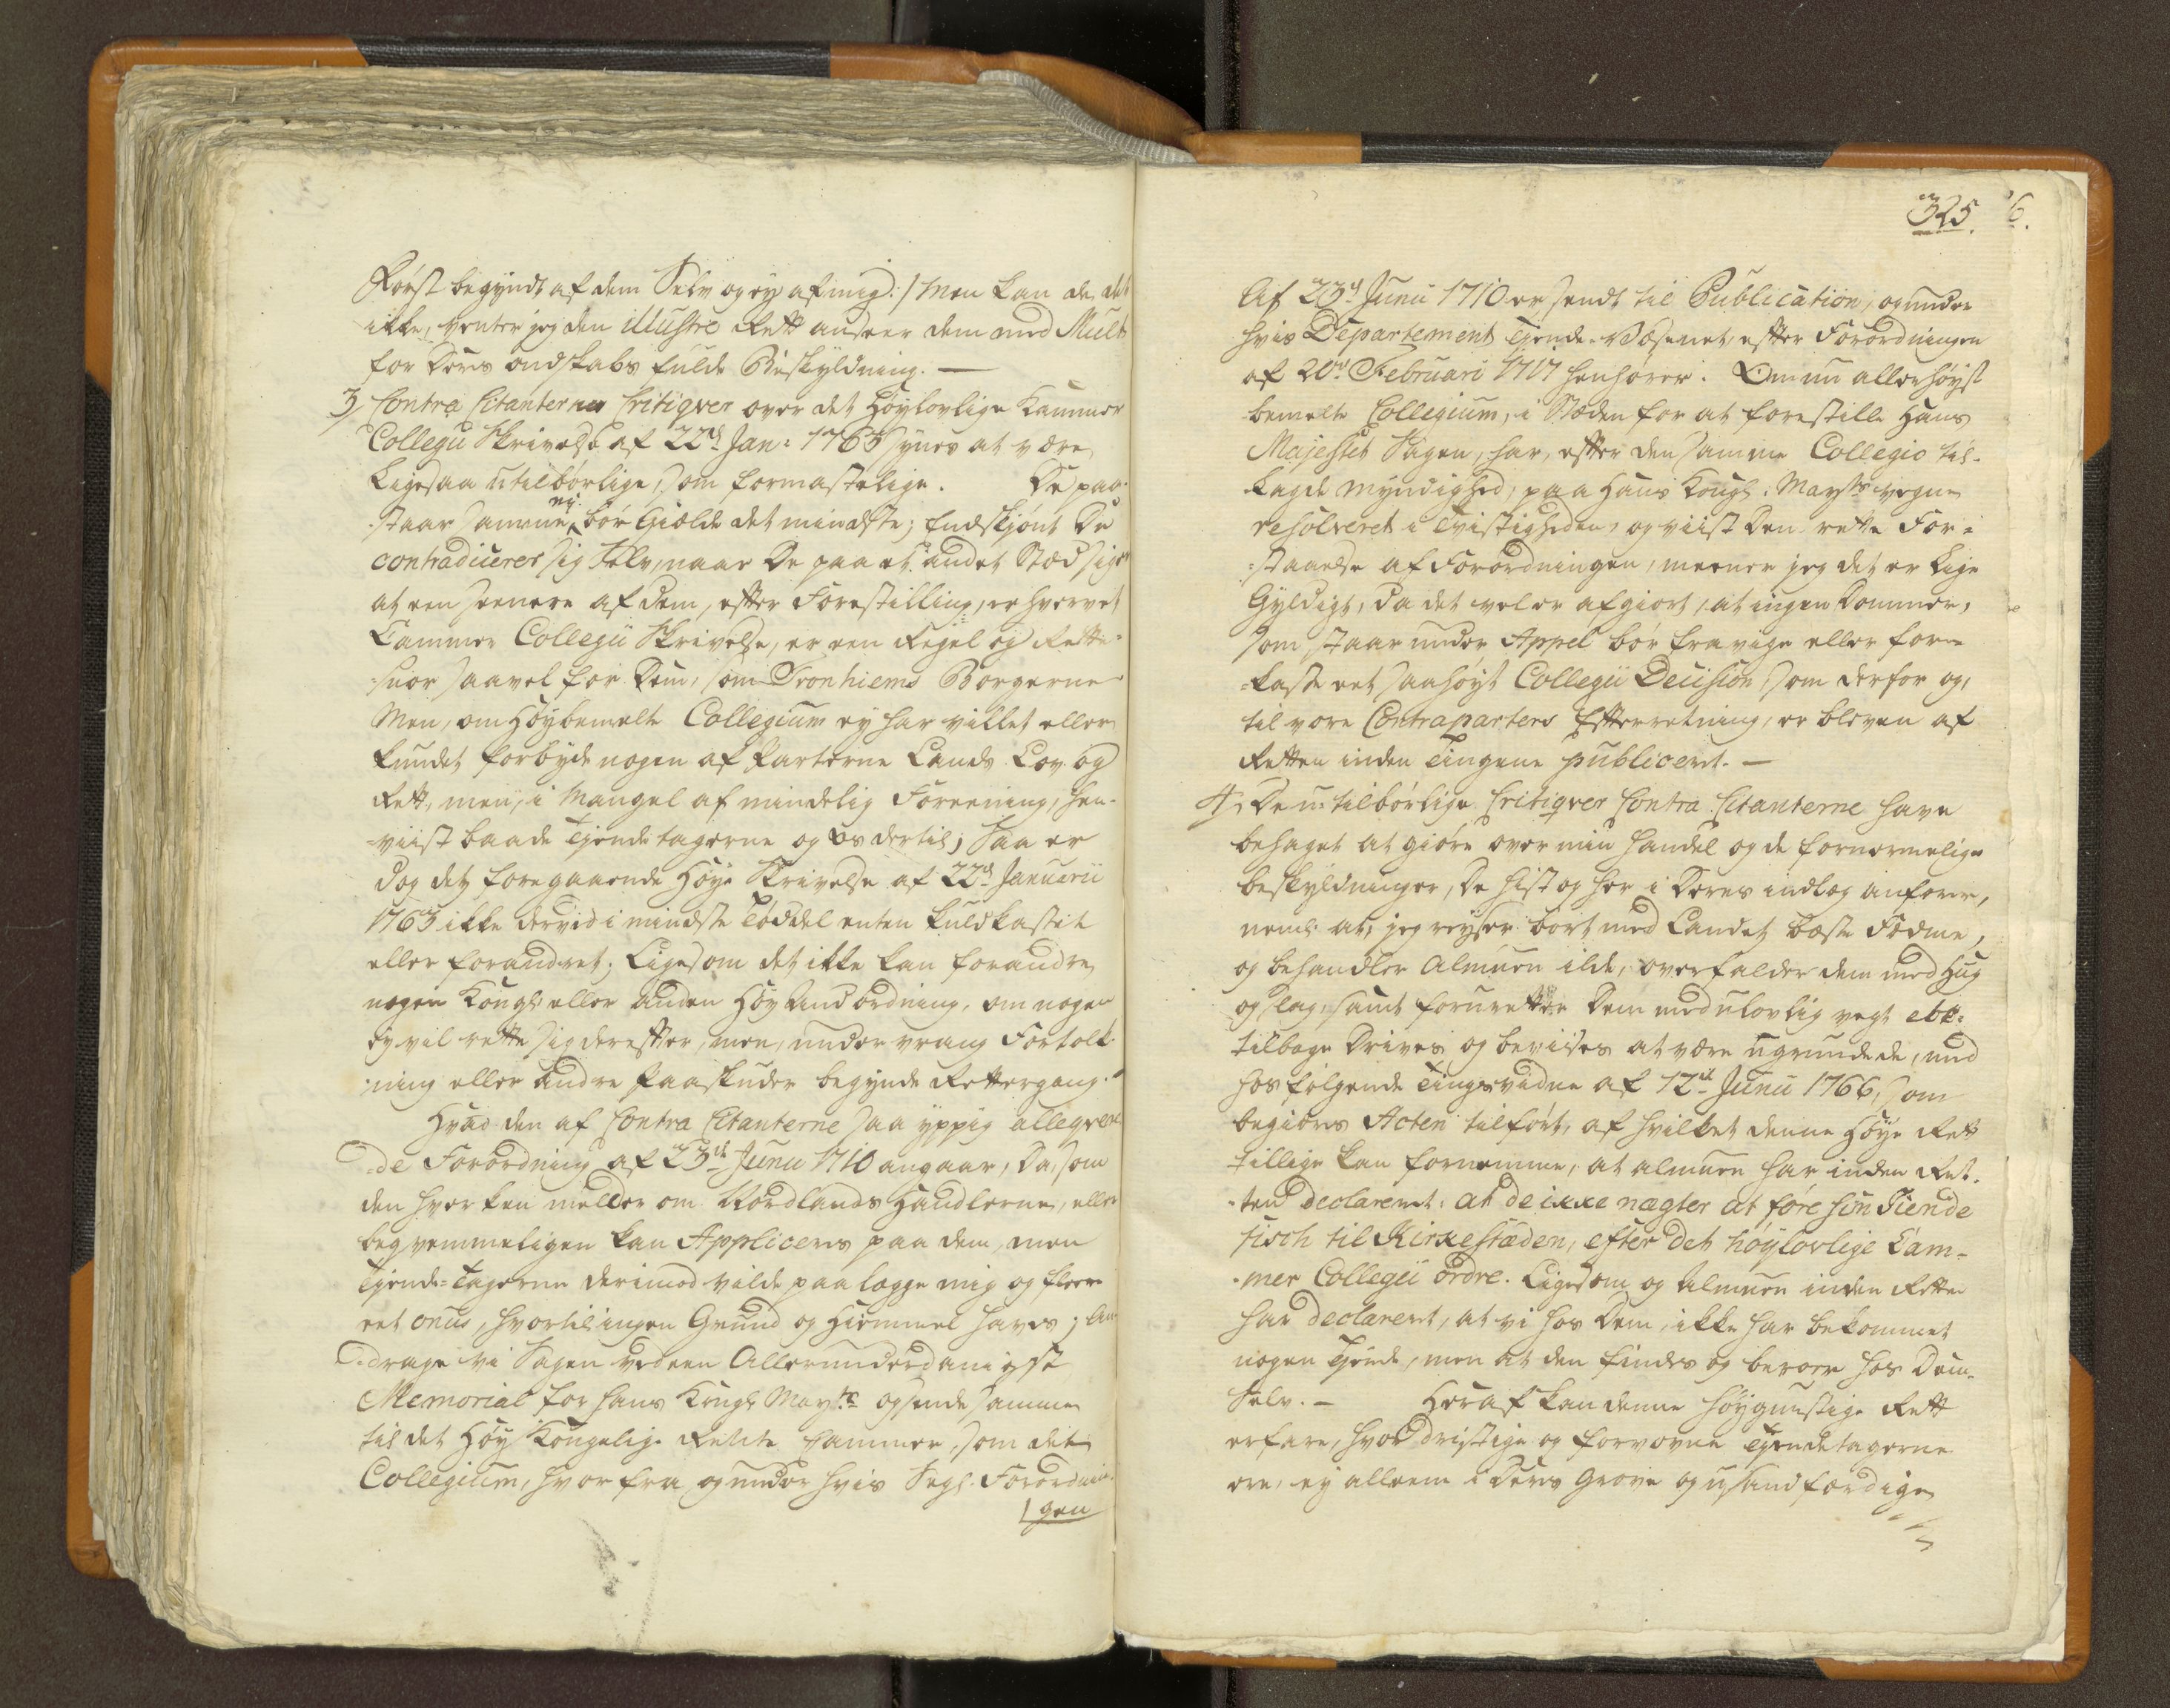 Først begyndt af dem Selv og ey af mig :/ Men kan de det
ikke, venter jeg den illustre Rett ansees dem med Mult
for Deres ondskabs fulde Beskyldning. —
3, Contra Citanternes Critiqver over det Høylovlige Kammer
Collegii Skrivelse af 22de Jan: 1763 synes at være
Ligesaa utilbørlige, som formastelige. De paa-
ey
staar samme bør Gielde det mindste; Endskiønt De
contradicerer sig Selv, naar De paa et andet Stæd siger
at een senere af dem, efter Forestilling, erhvervet
Cammer Collegii Skrivelse, er een Regel og Rette-
snor saavel for Dem, som Tronhiems Borgerne
Men, om Høybemelte Collegium ey har villet eller
kundet forbyde nogen af Parterne Lands Lov og
Rett, men, i Mangel af mindelig Foreening, hen-
viist baade Tiendetagerne og os dertil; Saa er
dog det foregaaende Høye Skrivelse af 22de Januarii
1763 ikke derved i mindste Tøddel enten kuldkastet
eller forandret; Ligesom det ikke kan forandre
nogen Kongl: eller anden Høy Anordning, om nogen
ey vil rette sig derefter, men, under vrang Fortolk-
ning eller andre Paaskuder begynde Rettergang.
Hvad den af Contra Citanterne saa yppig alleqvere-
de Forordning af 23de Junii 1710 angaar, Da, som
den hverken melder om Nordlands Handlerne, eller
beqvemmeligen kan Appliceres paa dem, men
Tiende-Tagerne derimod vilde paalægge mig og fleere
eet onus, hvortil ingen Grund og Hiemmel haves; An-
drage vi Sagen ved een Allerunderdanigst
Memorial for hans Kongl May:ts og sende samme
til det Høy Kongelige Rente Cammer, som det
Collegium, hvorfra og under hvis Segl. Forordnin-
gen
325. 6.
Af 23de Junii 1710 er sendt til Publication, og under
hvis Departement Tiende-Væsenet, efter Forordningen
af 20de Februari 1717 henhører. Om nu allerhøyst
bemelte Collegium, i Stæden for at forestille Hans
Majestet Sagen, har, efter den samme Collegio til-
lagde Myndighed, paa Hans Kongl: Mayts vegne
resolveret i Tvistigheden, og viist Den rette For-
staaelse af Forordningen, meener jeg det er Lige
Gyldigt, da det vel er afgiort, at ingen Dommer,
som staar under Appel bør fravige eller for-
kaste eet saa høyt Collegii Decision, som derfor og,
til vore Contraparters Efterretning, er bleven af
Retten inden Tingene publiceret. —
4, De u-tilbørlige Critiqver Contra Citanterne have
behaget at giøre over min Handel og de fornærmelige
beskyldninger, De hist og her i Deres indlæg anfører,
neml: at, jeg reyser bort med Landets beste Fædme,
og behandler Almuen ilde, overfalder dem med Hug
og slag, samt foruretter Dem med ulovlig vegt etc:
tilbage Drives og bevises at være ugrundede, med
hosfølgende Tingsvidne af 12te Junii 1766, som
begieres Acten tilført, af hvilket denne Høye Rett
tillige kan fornemme, at Almuen har inden Ret-
ten declareret: at de ikke nægter at føre sin Tiende
fisch til Kirkestæden, efter det høylovlige Cam-
mer Collegii ordre. Ligesom og Almuen inden Retten
har declareret, at vi hos Dem, ikke har bekommet
nogen Tiende, men at den findes og beroer hos Dem
Selv. — Heraf kan denne høygunstige Rett
erfare, hvor dristige og forvovne Tiendetagerne
ere, ey alleene i Deres Grove og usandfærdige